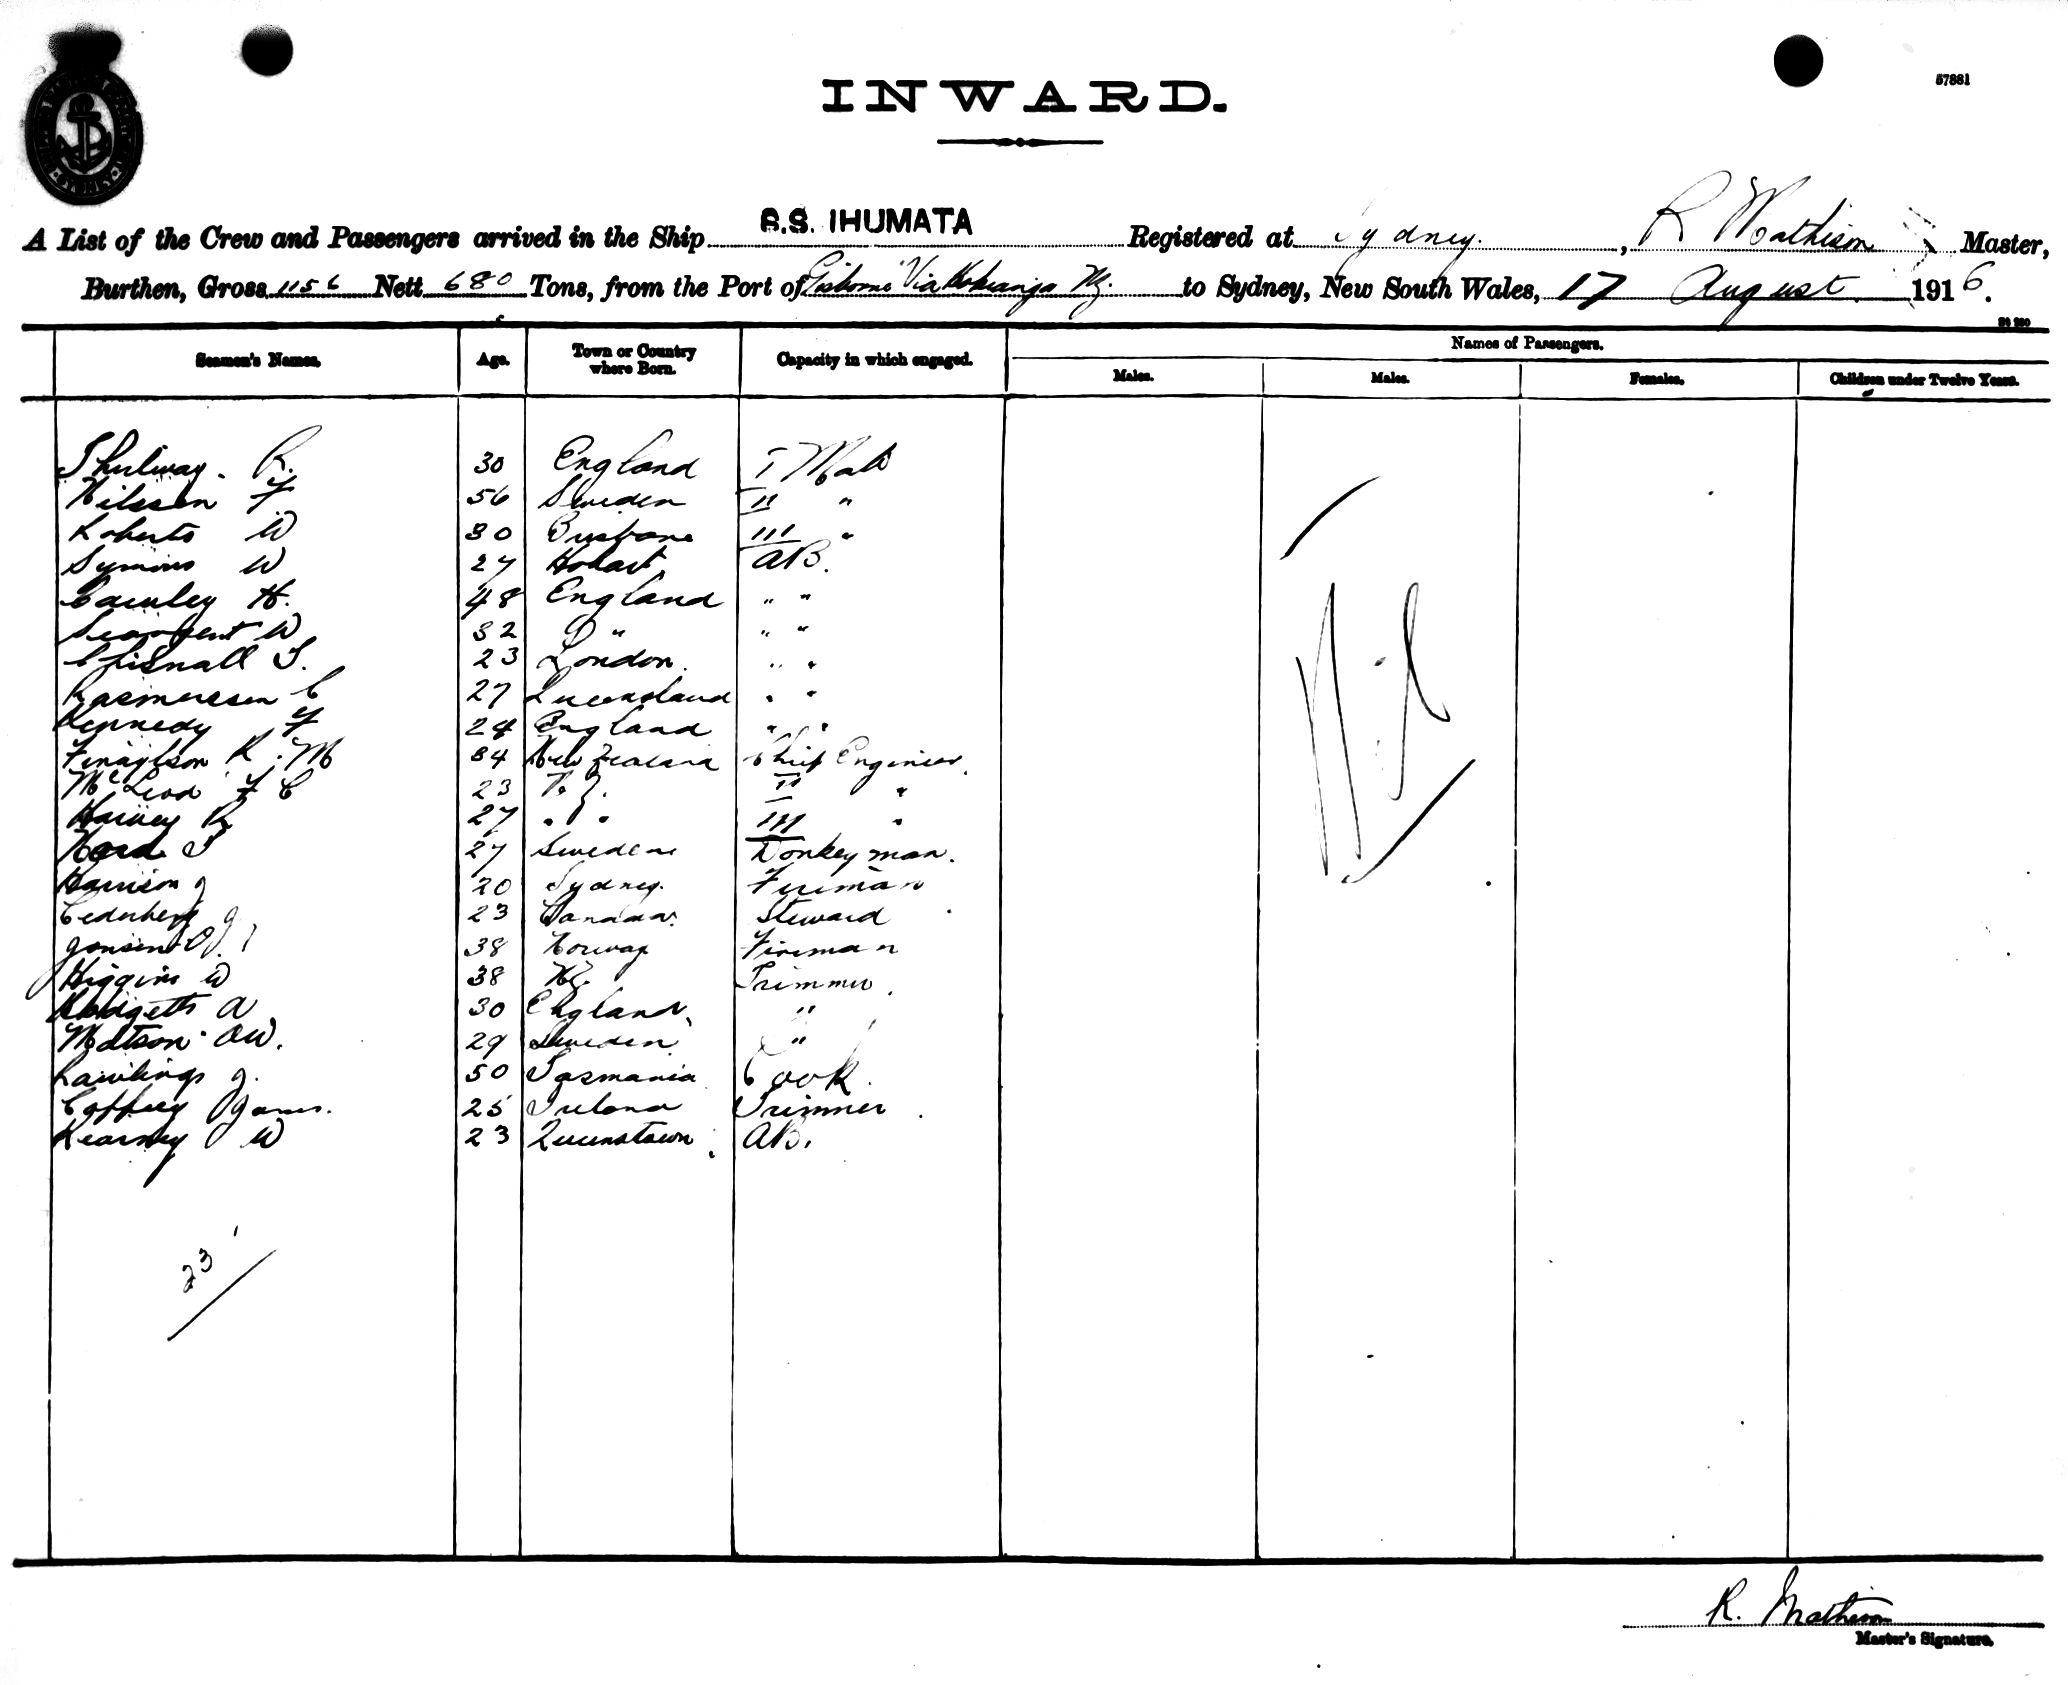 57881
INWARD.
A List of the Crew and Passengers arrived in the Ship S.S. IHUMATA Registered at Sydney. , R Mathison Master,
Burthen, Gross 1156 Nett 680 Tons, from the Port of Gisborne Via Hokianga NZ. to Sydney, New South Wales, 17 August 1916.
Seamen's Names. Age. Town or Country where Born. Capacity in which engaged. Names of Passengers.
Males. Males. Females. Children under Twelve Years.
R. 30 England I Mate
Nilsson F 56 Sweden II "
Roberts W 30 Brisbane III "
Symons W 27 Hobart. AB.
Cawley H. 48 England " "
Seargent W 32 D " " "
Chisnall S. 23 London. " "
Rasmussen C 27 Queensland " "
Kennedy F 24 England " "
Finayson R. M 34 New Zealand Chief Engineer.
McLeod F C 23 N.Z. II "
Harvey R 27 " " III "
27 Sweden Donkeyman.
Harrison J 20 Sydney. Fireman
Cederberg J 23 Canada. Steward
Jonsen O J. 38 Norway Fireman
Higgins W 38 NZ. Trimmer.
A 30 England. "
Matson OW. 29 Sweden "
Rawlings J. 50 Tasmania Cook.
Caffrey James. 25 Ireland Trimmer.
Kearney W 23 Queenstown. AB.
Nil
23
R. Mathison
Master's Signature.